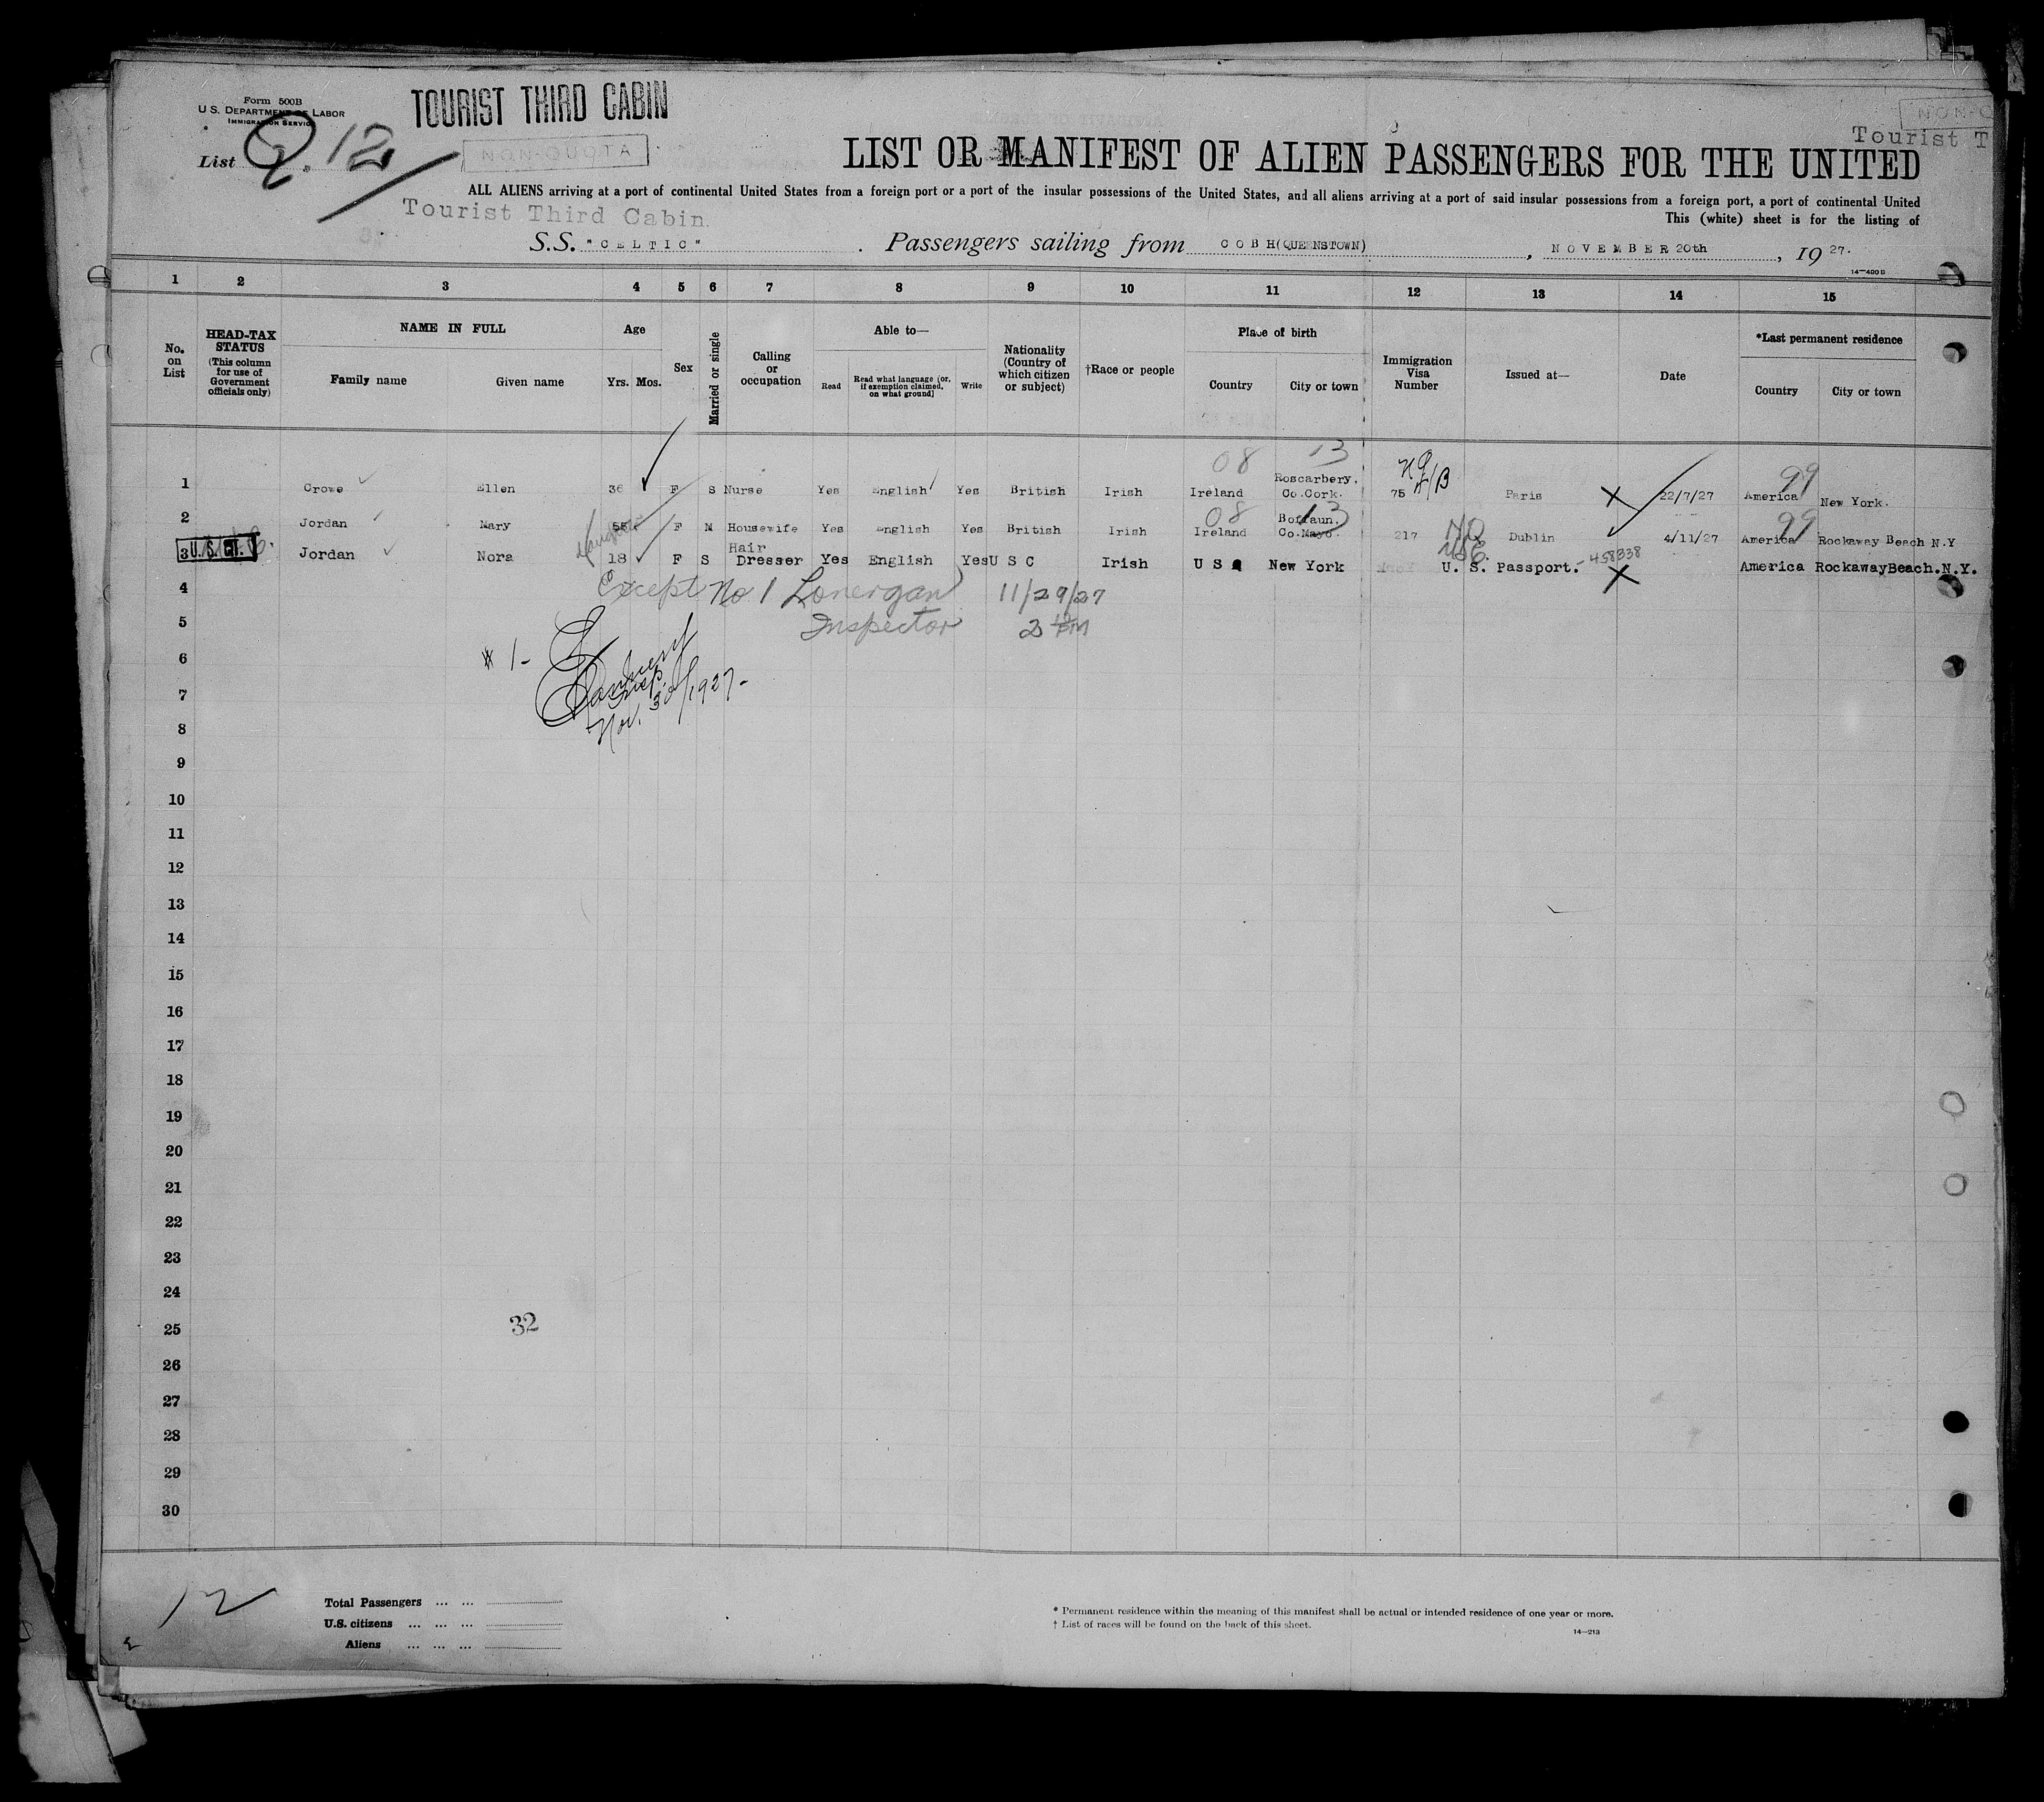 Form 500B
U. S. DEPARTMENT OF LABOR
IMMIGRATION SERVICE
TOURIST THIRD CABIN
NON-QUOTA
List 2. 12
NON-Q
Tourist T
LIST OR MANIFEST OF ALIEN PASSENGERS FOR THE UNITED
ALL ALIENS arriving at a port of continental United States from a foreign port or a port of the insular possessions of the United States, and all aliens arriving at a port of said insular possessions from a foreign port, a port of continental United
This (white) sheet is for the listing of
Tourist Third Cabin.
S.S. "CELTIC". Passengers sailing from COBH(QUEENSTOWN), NOVEMBER 20th, 1927.
14—400 B
1 2 3 4 5 6 7 8 9 10 11 12 13 14 15
No. on List
HEAD-TAX STATUS (This column for use of Government officials only)
NAME IN FULL
Family name Given name
Age
Yrs. Mos.
Sex
Married or single
Calling or occupation
Able to—
Read Read what language [or, if exemption claimed, on what ground] Write
Nationality (Country of which citizen or subject)
†Race or people
Place of birth
Country City or town
Immigration Visa Number
Issued at—
Date
*Last permanent residence
Country City or town
08 13 99
1 Crowe Ellen 36 F S Nurse Yes English Yes British Irish Ireland Roscarbery, Co.Cork. 75 Paris 22/7/27 America New York.
08 13 99
2 Jordan Mary 55 F M Housewife Yes English Yes British Irish Ireland Co.Mayo. 217 Dublin 4/11/27 America Rockaway Beach N.Y
daughter
3 U.S. CIT. Jordan Nora 18 F S Hair Dresser Yes English Yes U S C Irish U S A New York U. S. Passport. - 458338 America RockawayBeach.N.Y.
4 Except No 1 Lonergan 11/29/27
5 Inspector
6 # 1-
7 Insp. Nov. 30/1927-
8
9
10
11
12
13
14
15
16
17
18
19
20
21
22
23
24
25 32
26
27
28
29
30
12
Total Passengers ... ...
U.S. citizens ... ... ...
Aliens ... ... ...
* Permanent residence within the meaning of this manifest shall be actual or intended residence of one year or more.
† List of races will be found on the back of this sheet.
14—213